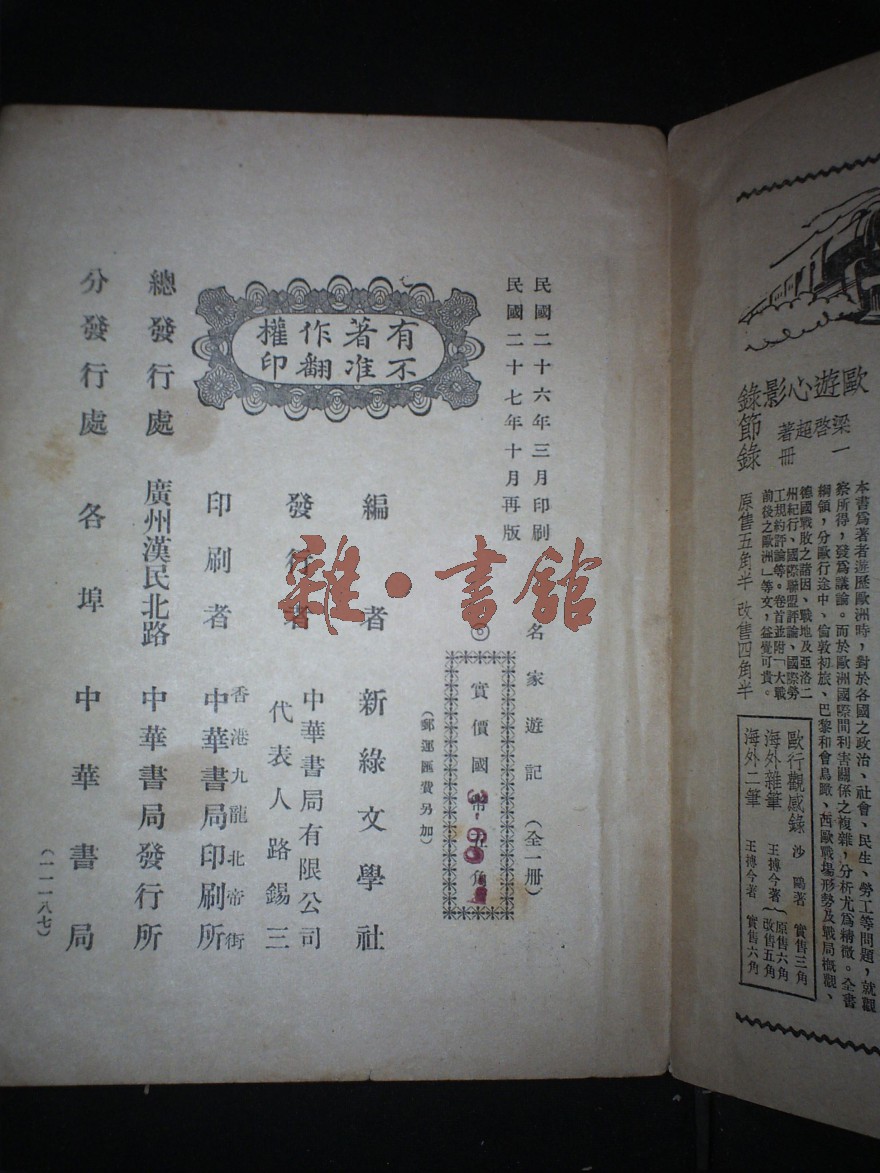 民國二十六年三月印刷
民國二十七年十月再版
名家遊記（全一册）
實價國幣五角
（郵運匯費另加）
有著作權
不准翻印
編者 新綠文學社
發行者 中華書局有限公司
代表人路錫三
印刷者 香港九龍北帝街
中華書局印刷所
總發行處 廣州漢民北路 中華書局發行所
分發行處 各埠 中華書局
（一一一八七）
雜·書館
歐遊心影錄節錄
梁啓超著
一册
原售五角半 改售四角半
本書爲著者遊歷歐洲時，對於各國之政治、社會、民生、勞工等問題，就觀
察所得，發爲議論。而於歐洲國際間利害關係之複雜，分析尤爲精微。全書
綱領，分歐行途中、倫敦初旅、巴黎和會鳥瞰、西歐戰場形勢及戰局概觀、
德國戰敗之諸因、戰地及亞洛二
州紀行、國際聯盟評論、國際勞
工規約評論等。卷首並附「大戰
前後之歐洲」等文，益覺可貴。
歐行觀感錄 沙鷗著 實售三角
海外雜筆 王搏今著 原售六角 改售五角
海外二筆 王搏今著 實售六角